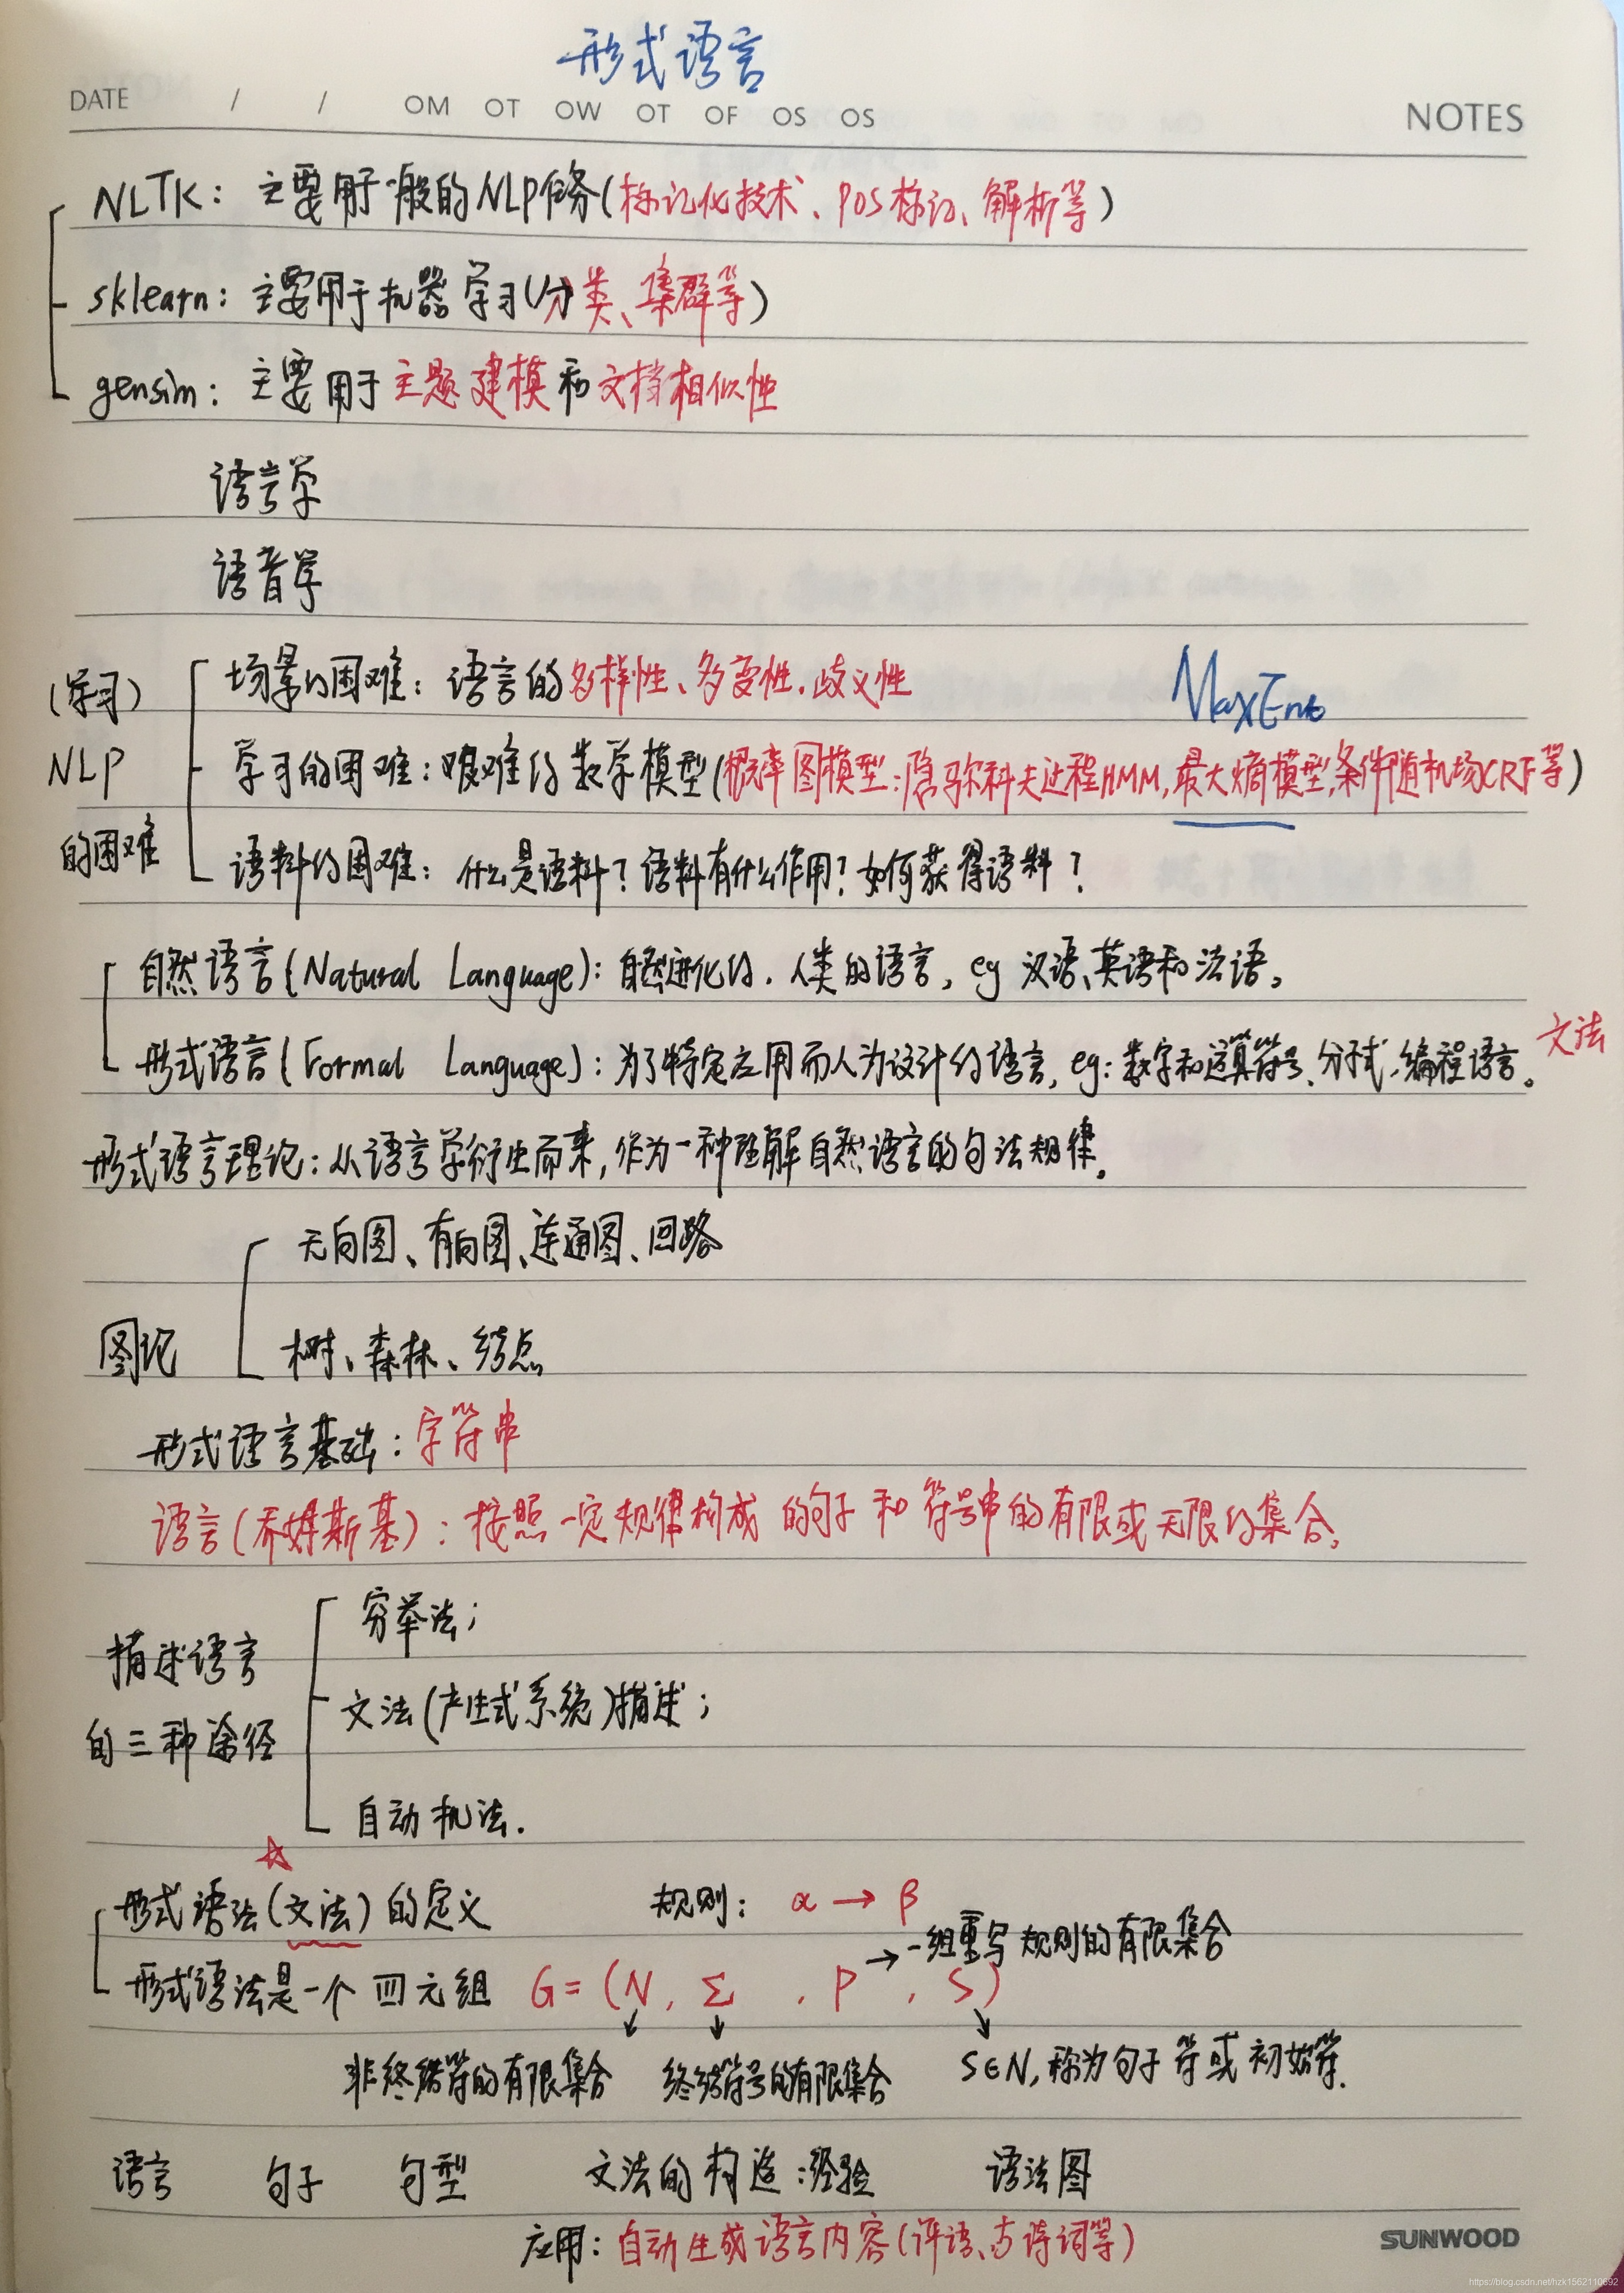 形式语言
DATE / / OM OT OW OT OF OS OS NOTES
NLTK：主要用于一般的NLP任务（标记化技术、POS标记、解析等）
sklearn：主要用于机器学习（分类、集群等）
gensim：主要用于主题建模和文档相似性
语言学
语音学
（学习）
NLP
的困难
场景的困难：语言的多样性、多变性、歧义性
MaxEnt
学习的困难：艰难的数学模型（概率图模型：隐马尔科夫过程HMM，最大熵模型，条件随机场CRF等）
语料的困难：什么是语料？语料有什么作用？如何获得语料？
自然语言（Natural Language）：自然进化的，人类的语言，eg 汉语、英语和法语。
形式语言（Formal Language）：为了特定应用而人为设计的语言，eg：数字和运算符号、分子式、编程语言。文法
形式语言理论：从语言学衍生而来，作为一种理解自然语言的句法规律。
图论
无向图、有向图、连通图、回路
树、森林、结点
形式语言基础：字符串
语言（乔姆斯基）：按照一定规律构成的句子和符号串的有限或无限的集合。
描述语言
的三种途径
穷举法；
文法（产生式系统）描述；
自动机法.
形式语法（文法）的定义 规则：α → β
→一组重写规则的有限集合
形式语法是一个四元组 G=（N，Σ，P，S）
非终结符的有限集合 终结符号的有限集合 S∈N，称为句子符或初始符.
语言 句子 句型 文法的构造：经验 语法图
应用：自动生成语言内容（评语、古诗词等）
SUNWOOD
https://blog.csdn.net/hzk1562110692